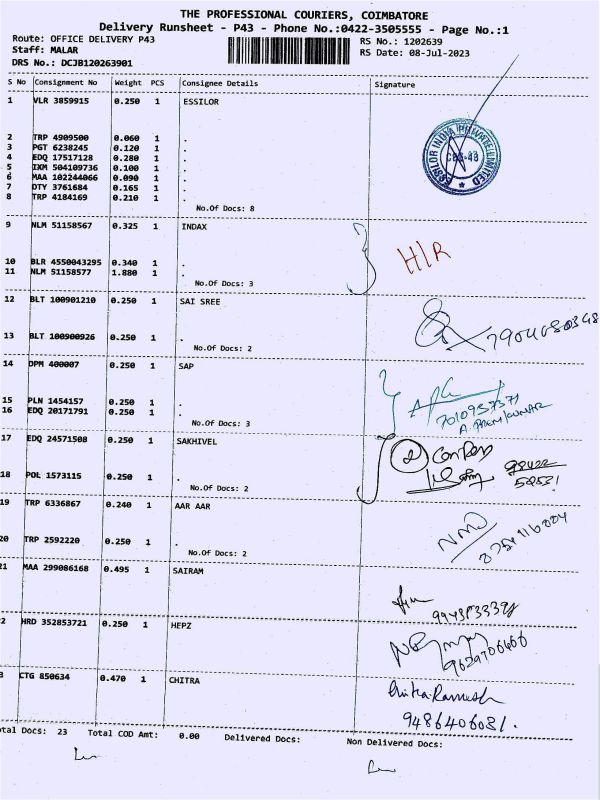 THE PROFESSIONAL COURIERS, COIMBATORE
Delivery Runsheet - P43 - Phone No.:0422-3505555 - Page No.:1
Route: OFFICE DELIVERY P43 RS No.: 1202639
Staff: MALAR RS Date: 08-Jul-2023
DRS No.: DCJB120263901
S No Consignment No Weight PCS Consignee Details Signature
1 VLR 3859915 0.250 1 ESSILOR
2 TRP 4909500 0.060 1 .
3 PGT 6238245 0.120 1 .
4 EDQ 17517128 0.280 1 .
5 IXM 504109736 0.100 1 .
6 MAA 102244066 0.090 1 .
7 DTY 3761684 0.165 1 .
8 TRP 4184169 0.210 1 .
ESSILOR INDIA PRIVATE LIMITED
No.Of Docs: 8
9 NLM 51158567 0.325 1 INDAX
H/R
10 BLR 4550043295 0.340 1 .
11 NLM 51158577 1.880 1 .
No.Of Docs: 3
12 BLT 100901210 0.250 1 SAI SREE
13 BLT 100900926 0.250 1 .
No.Of Docs: 2
14 DPM 400007 0.250 1 SAP
15 PLN 1454157 0.250 1 .
16 EDQ 20171791 0.250 1 .
7010957371
No.Of Docs: 3
17 EDQ 24571508 0.250 1 SAKHIVEL
18 POL 1573115 0.250 1 .
No.Of Docs: 2
19 TRP 6336867 0.240 1 AAR AAR
20 TRP 2592220 0.250 1 .
No.Of Docs: 2
21 MAA 299086168 0.495 1 SAIRAM
2 HRD 352853721 0.250 1 HEPZ
9629706606
3 CTG 850634 0.470 1 CHITRA
Chitra Ramesh
9486406031.
otal Docs: 23 Total COD Amt: 0.00 Delivered Docs: Non Delivered Docs: